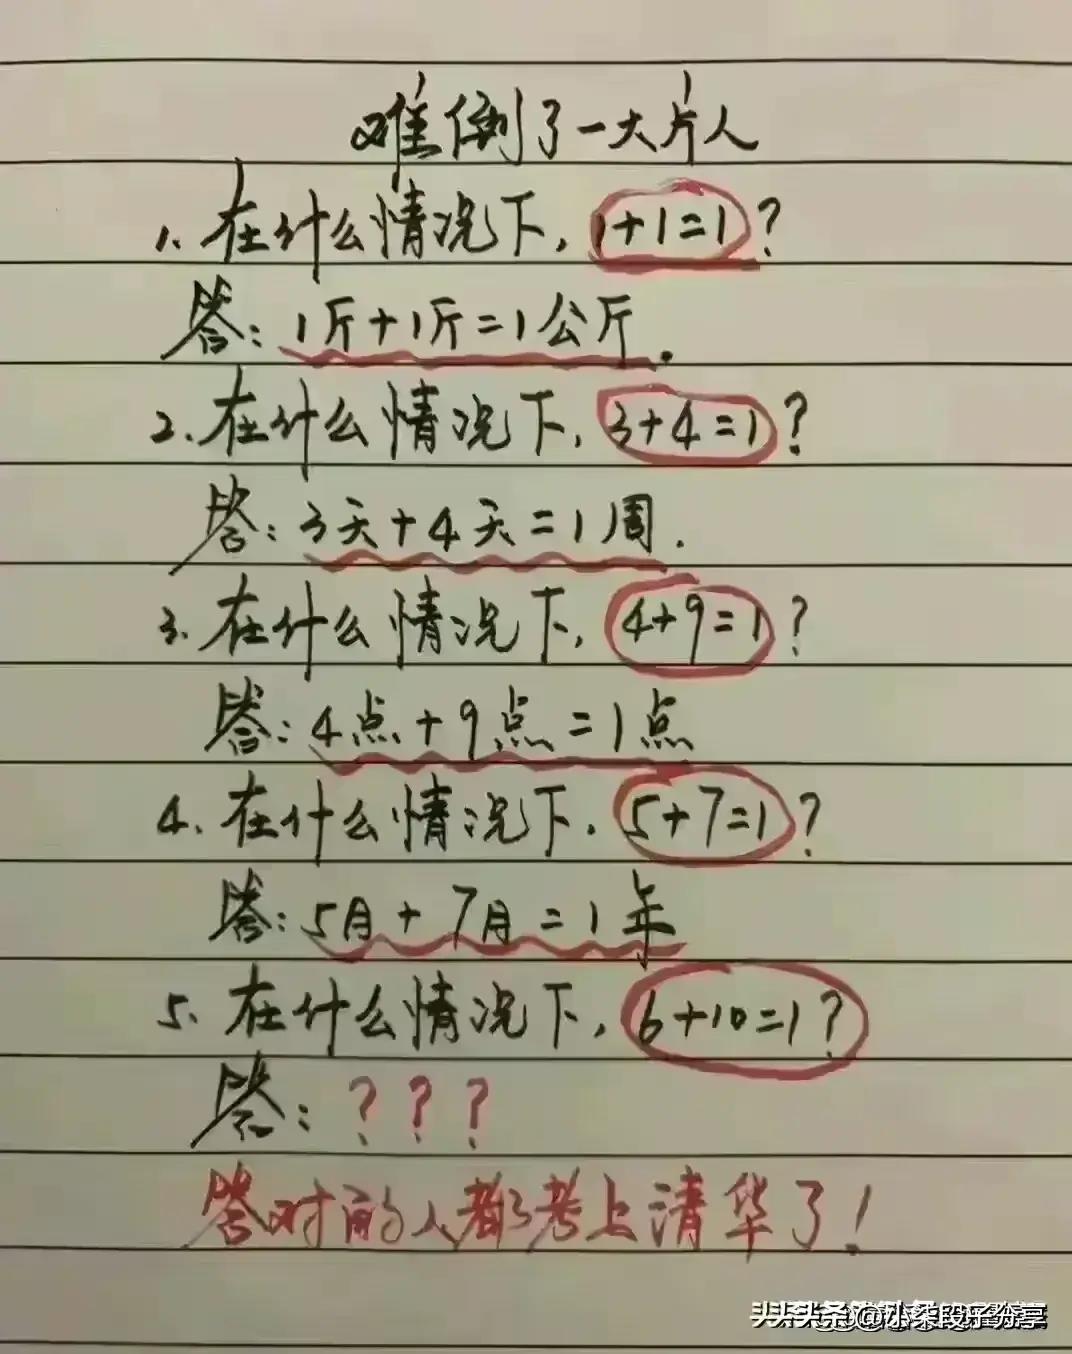 难倒了一大片人
1. 在什么情况下, 1+1=1?
答: 1斤+1斤=1公斤.
2. 在什么情况下, 3+4=1?
答: 3天+4天=1周.
3. 在什么情况下, 4+9=1?
答: 4点+9点=1点
4. 在什么情况下, 5+7=1?
答: 5月+7月=1年
5. 在什么情况下, 6+10=1?
答: ? ? ?
答对的人都考上清华了!
头头条@小朵段子分享